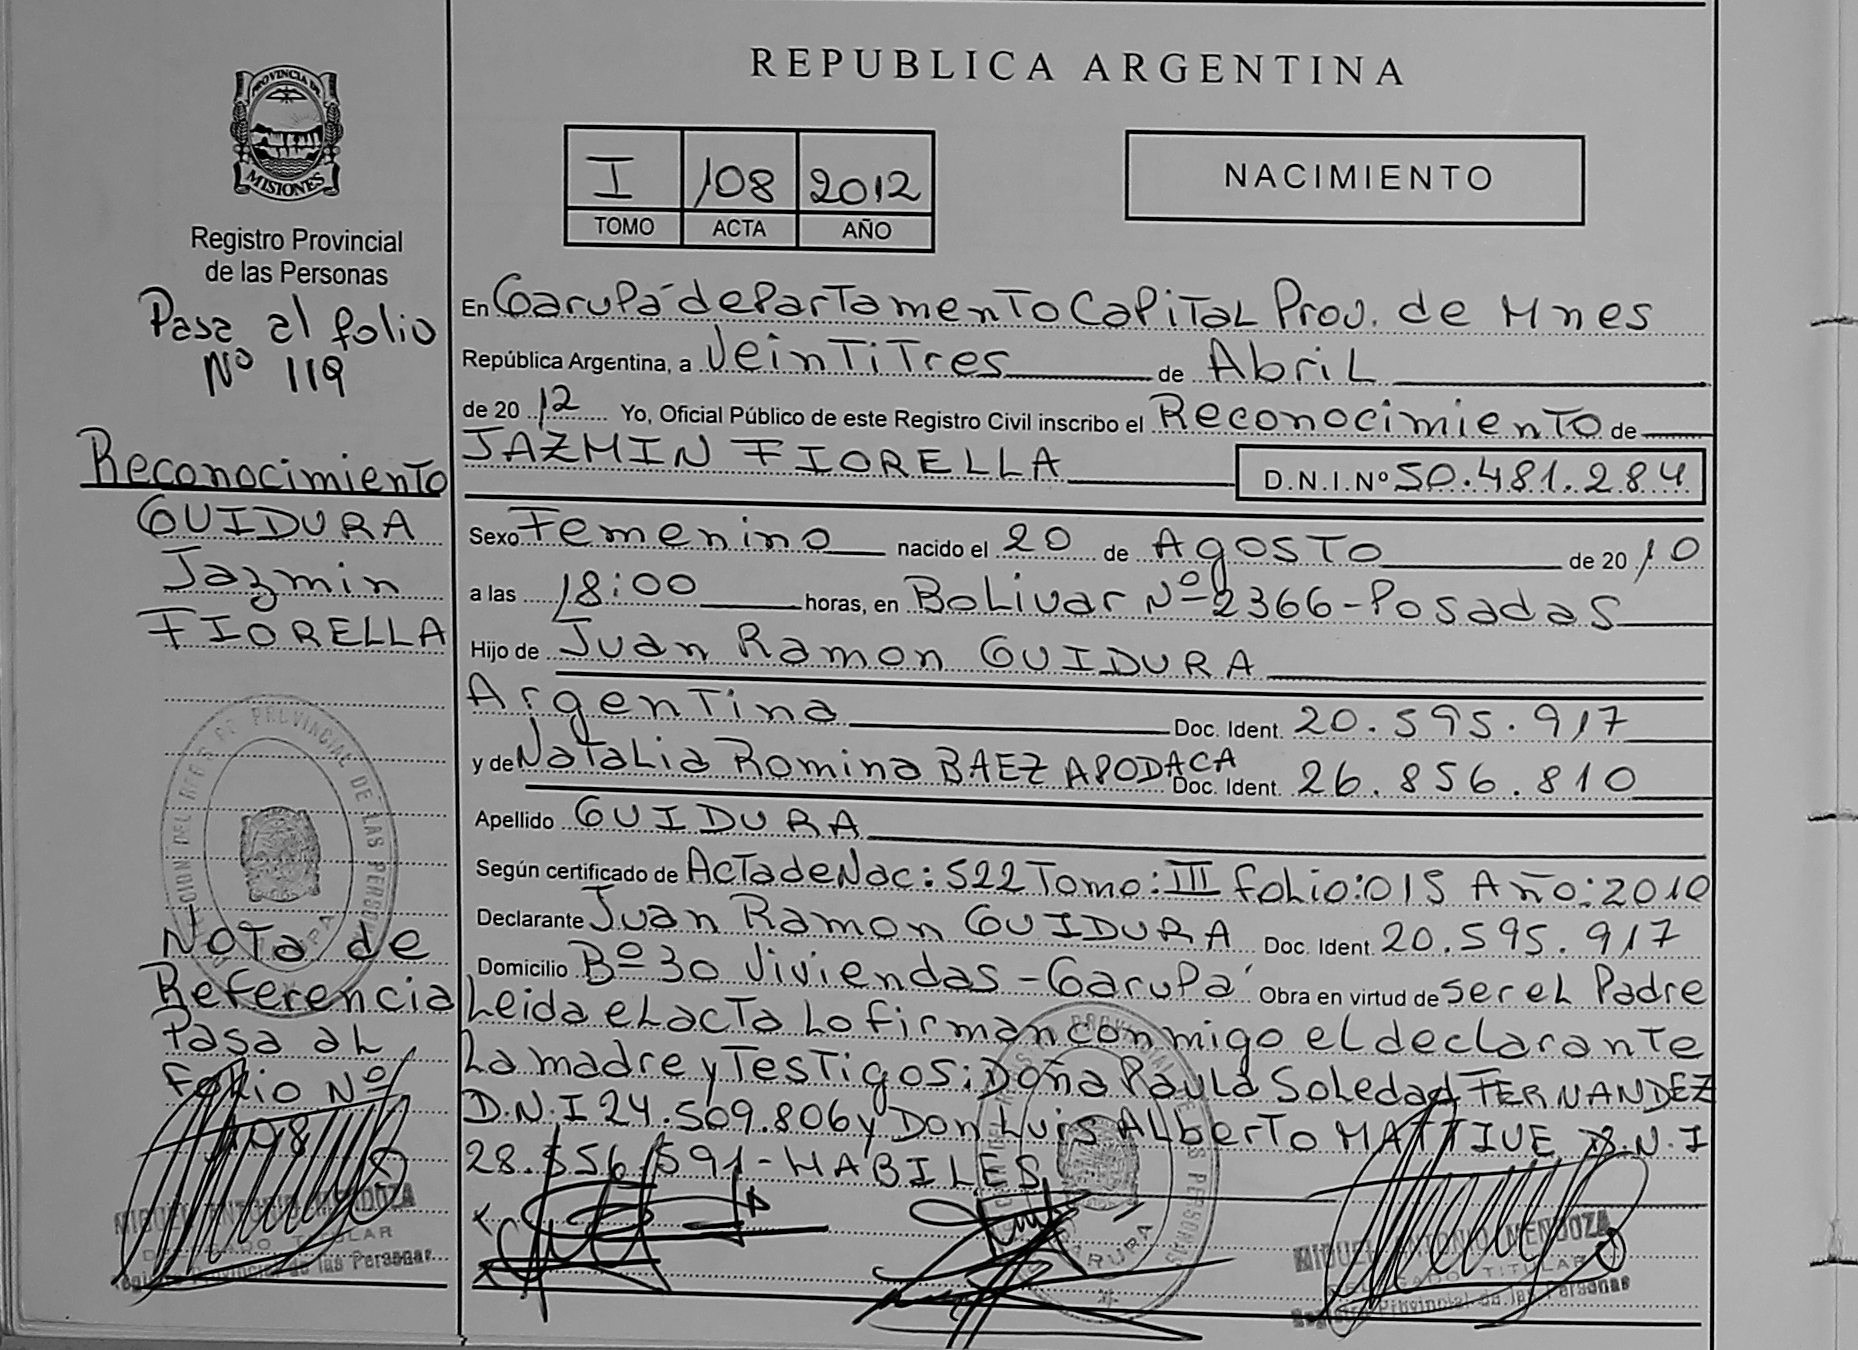 PROVINCIA DE
MISIONES
Registro Provincial
de las Personas
Pasa al folio
Nº 119
Reconocimiento
GUIDURA
Jazmin
FIORELLA
Nota de
Referencia
Pasa al
Folio Nº
198
MIGUEL ANTONIO MENDOZA
DELEGADO TITULAR
Registro Provincial de las Personas
REPUBLICA ARGENTINA
I 108 2012
TOMO ACTA AÑO
NACIMIENTO
En Garupá departamento Capital Prov. de Mnes
República Argentina, a Veintitres de Abril
de 2012 Yo, Oficial Público de este Registro Civil inscribo el Reconocimiento de
JAZMIN FIORELLA D.N.I.Nº 50.481.284
Sexo Femenino nacido el 20 de Agosto de 2010
a las 18:00 horas, en Bolivar Nº 2366-Posadas
Hijo de Juan Ramon GUIDURA
Argentina Doc. Ident. 20.595.917
y de Natalia Romina BAEZ APODACA Doc. Ident. 26.856.810
Apellido GUIDURA
Según certificado de Acta de Nac: 522 Tomo: III folio: 015 Año: 2010
Declarante Juan Ramon GUIDURA Doc. Ident. 20.595.917
Domicilio Bº 30 Viviendas - Garupá Obra en virtud de ser el Padre
Leida el acta Lo firman conmigo el declarante
La madre y Testigos: Doña Paula Soledad FERNANDEZ
D.N.I 24.509.806 y Don Luis Alberto MATTIVE D.N.I
28.556.591 - HABILES
MIGUEL ANTONIO MENDOZA
DELEGADO TITULAR
Registro Provincial de las Personas